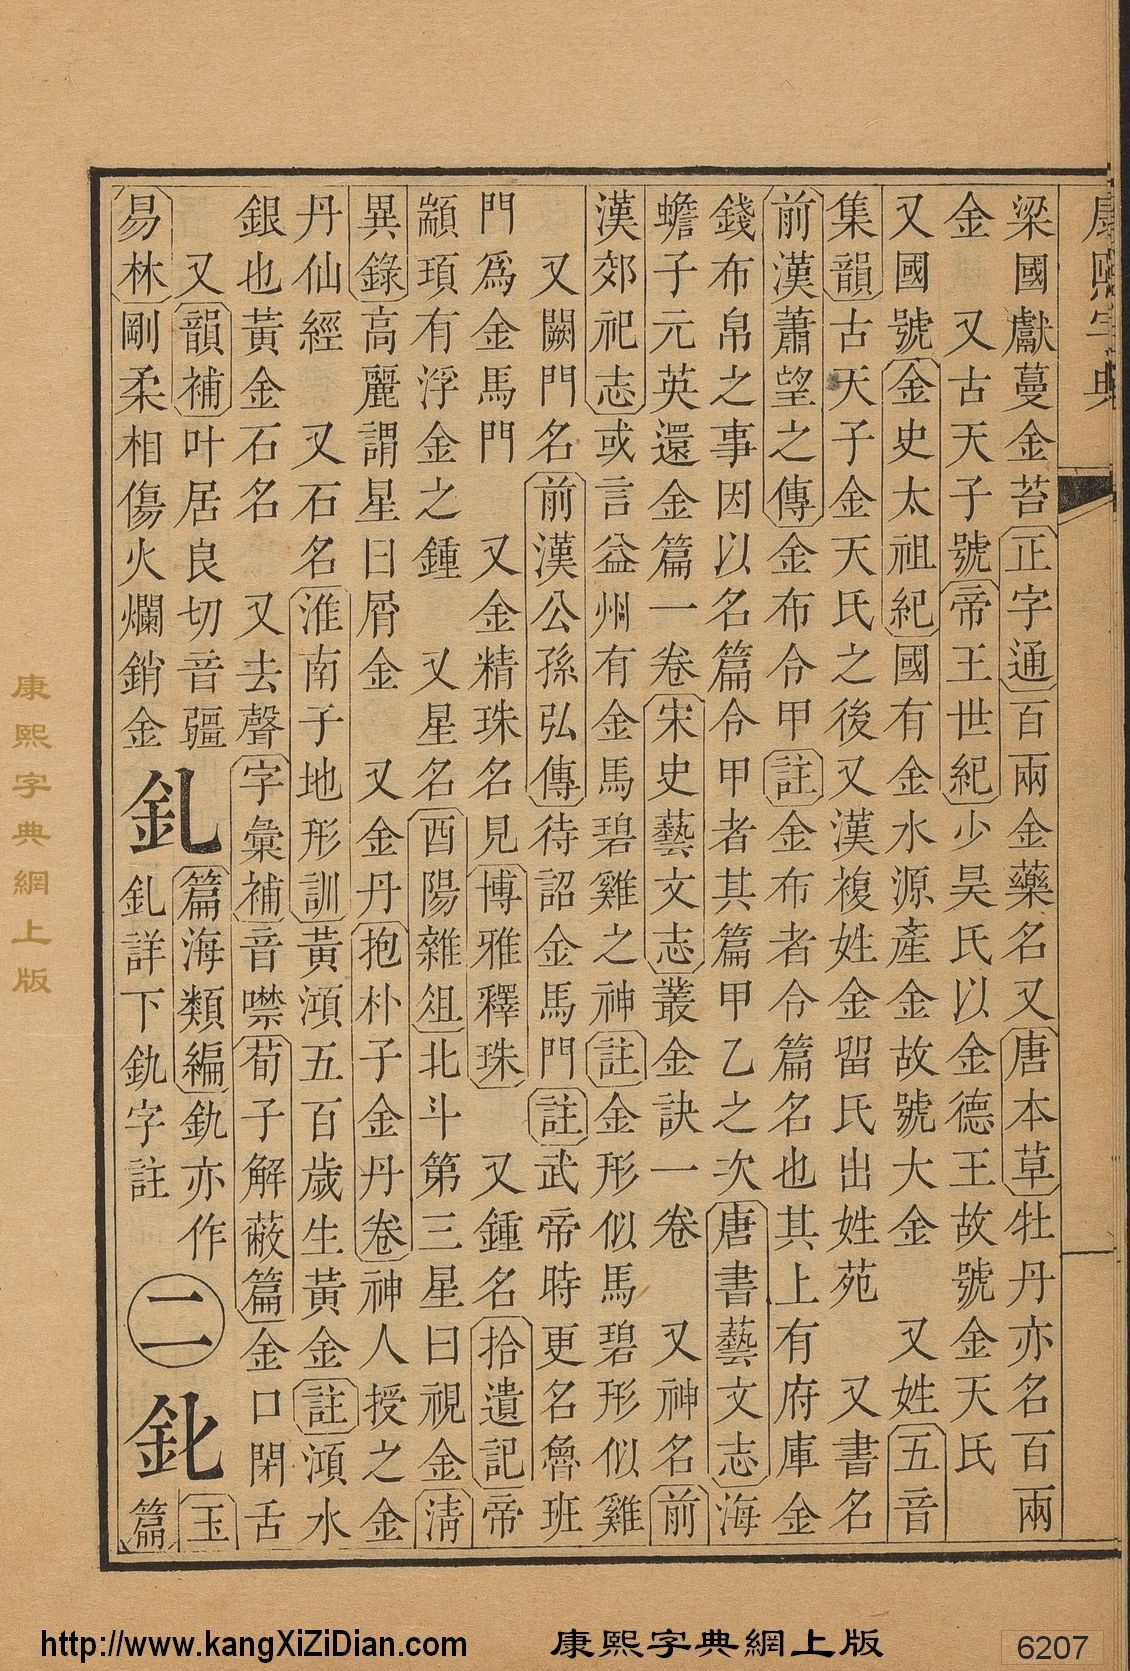 康熙字典
梁國獻蔓金苔正字通百兩金藥名又唐本草牡丹亦名百兩
金 又古天子號帝王世紀少昊氏以金德王故號金天氏
又國號金史太祖紀國有金水源產金故號大金 又姓五音
集韻古天子金天氏之後又漢複姓金留氏出姓苑 又書名
前漢蕭望之傳金布令甲註金布者令篇名也其上有府庫金
錢布帛之事因以名篇令甲者其篇甲乙之次唐書藝文志海
蟾子元英還金篇一卷宋史藝文志叢金訣一卷 又神名前
漢郊祀志或言益州有金馬碧雞之神註金形似馬碧形似雞
又闕門名前漢公孫弘傳待詔金馬門註武帝時更名魯班
門爲金馬門 又金精珠名見博雅釋珠 又鍾名拾遺記帝
顓頊有浮金之鍾 又星名酉陽雜俎北斗第三星曰視金淸
異錄高麗謂星曰屑金 又金丹抱朴子金丹卷神人授之金
丹仙經 又石名淮南子地形訓黃澒五百歲生黃金註澒水
銀也黃金石名 又去聲字彙補音噤荀子解蔽篇金口閉舌
又韻補叶居良切音疆
易林剛柔相傷火爛銷金
釓
篇海類編釚亦作
釓詳下釚字註
二
玉
篇
康熙字典網上版
http://www.kangXiZiDian.com 康熙字典網上版 6207